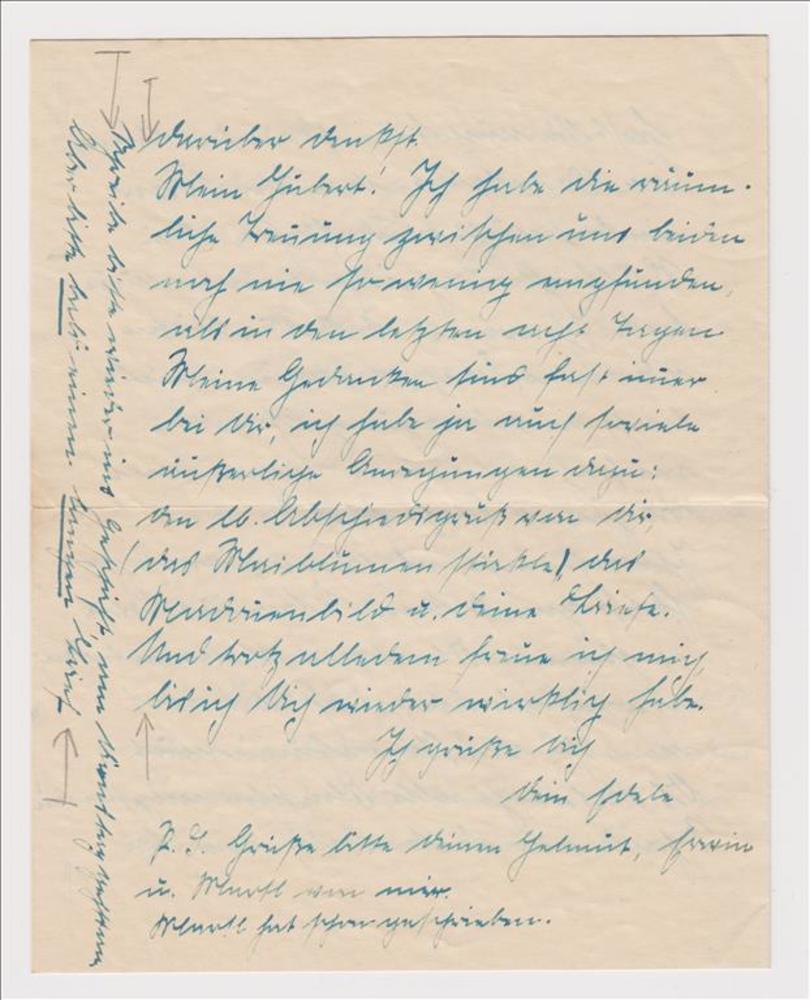 darüber denkst.
Mein Hubert! Ich habe die räum-
liche Trennung zwischen uns beiden
noch nie so wenig empfunden,
als in den letzten acht Tagen.
Meine Gedanken sind fast immer
bei Dir, ich habe ja auch soviele
äußerliche Anregungen dazu:
den lb. Abschiedsgruß von dir,
(das Maiblumenstöckle), das
Madonnenbild u. deine Briefe.
Und trotz alledem freue ich mich,
bis ich Dich wieder wirklich habe.
Ich grüße dich
dein Edele
P.S. Grüße bitte deinen Helmut, Erwin
u. Martl von mir.
Martl hat schon geschrieben.
Schreibe bitte wieder ins Geschäft, am Dienstag
Aber bitte bald einen langen Brief